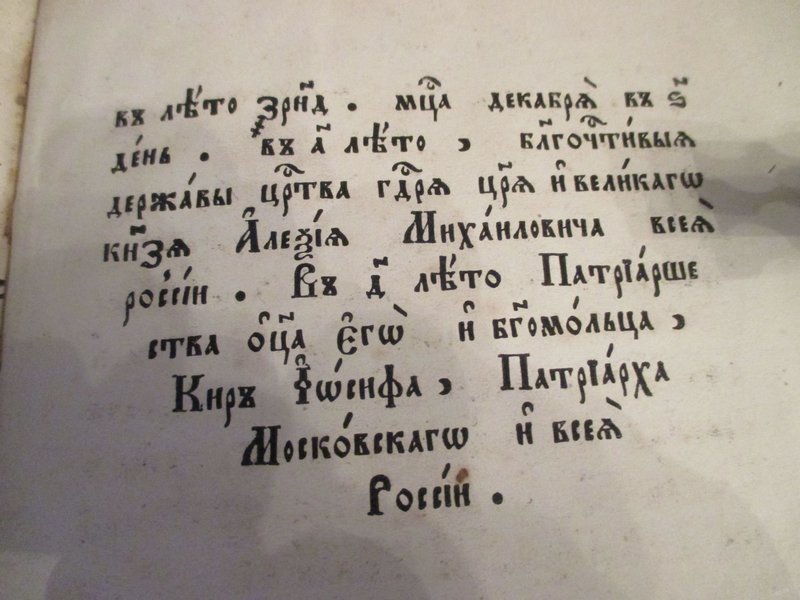 въ лѣ́то ҂зрн҃д . мц҇а декабрѧ̀ въ ѕ҃
де́нь . въ а҃ лѣ́то , бл҃гоч҇ти́выѧ
держа́вы цр҇тва гд҇рѧ цр҃ѧ и҆ вели́кагѡ
кн҃зѧ А҆леѯі́ѧ Миха́иловича всеѧ̀
росі́и . Въ д҃ лѣ́то Патрїа́рше
ства ѻ҆ц҃а є҆гѡ̀ и҆ бг҃омо́льца ,
Киръ І҆ѡ́сифа , Патрїа́рха
Моско́вскагѡ и҆ всеѧ̀
Россі́и .